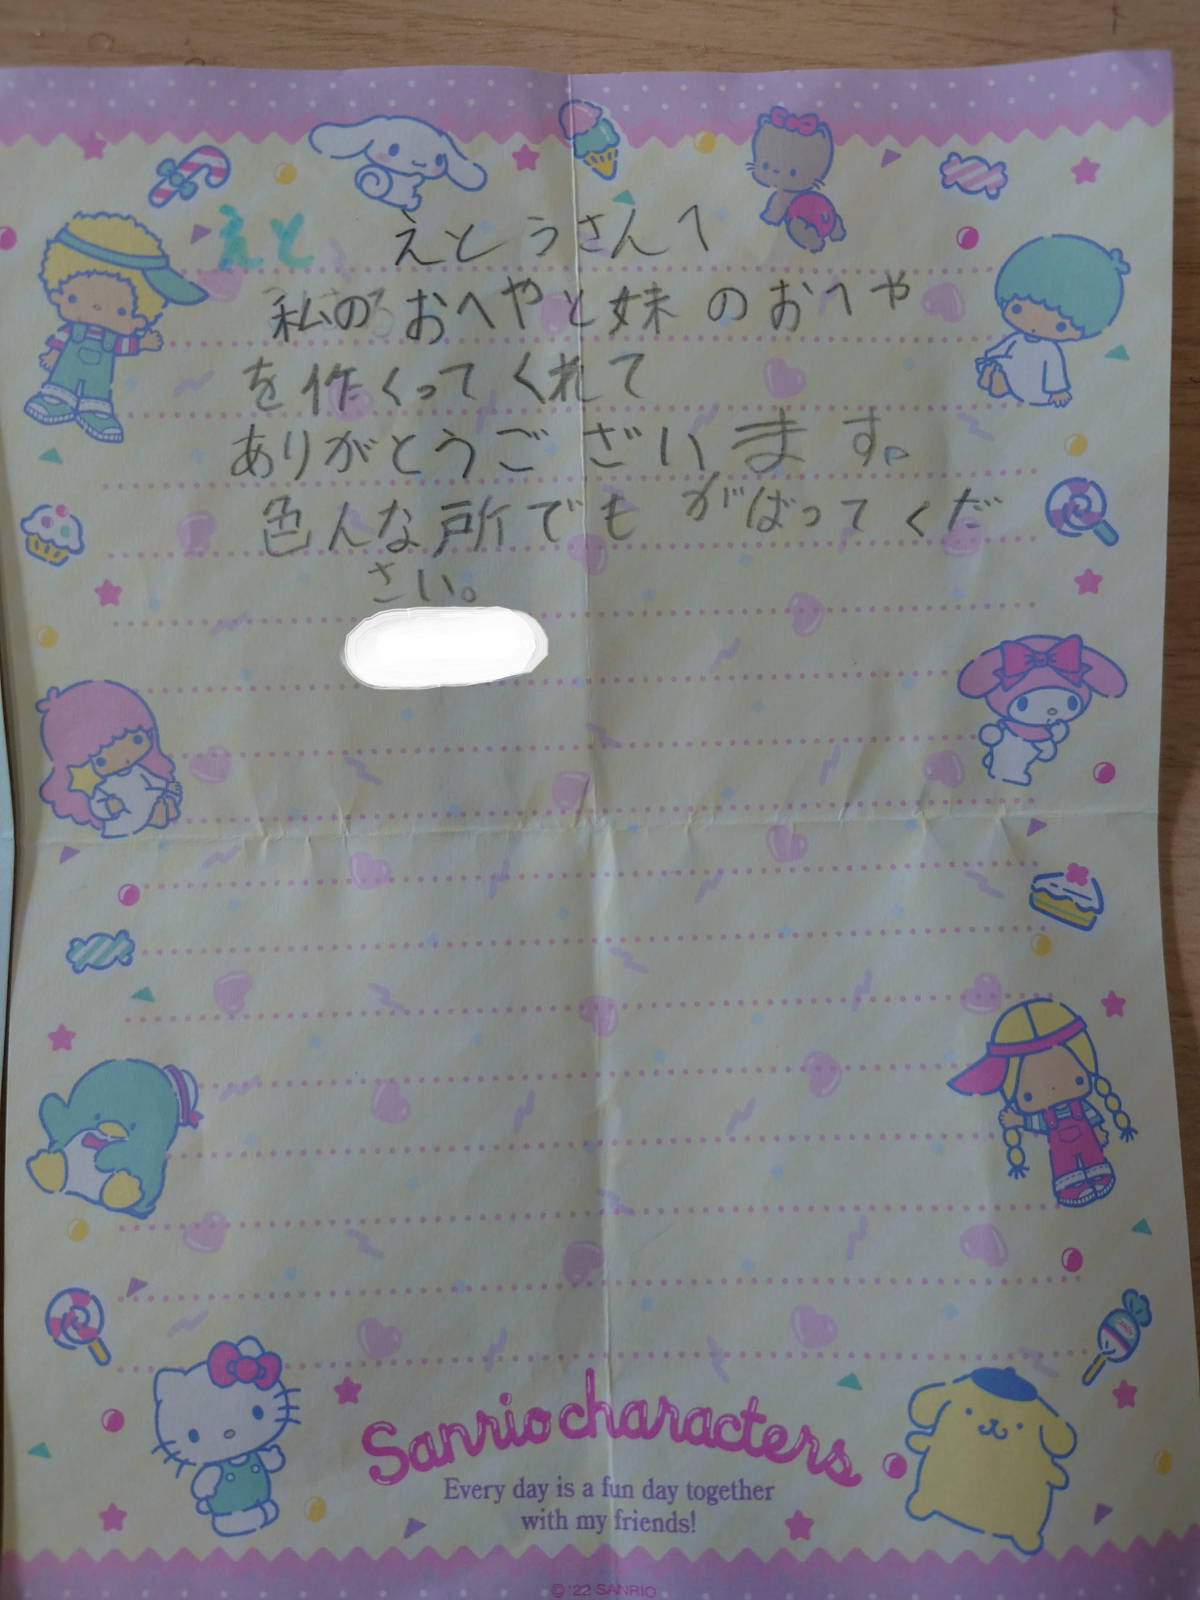 えと えとうさんへ
私のおへやと妹のおへや
を作くってくれて
ありがとうございます。
色んな所でもがばってくだ
さい。
Sanrio characters
Every day is a fun day together
with my friends!
© '22 SANRIO